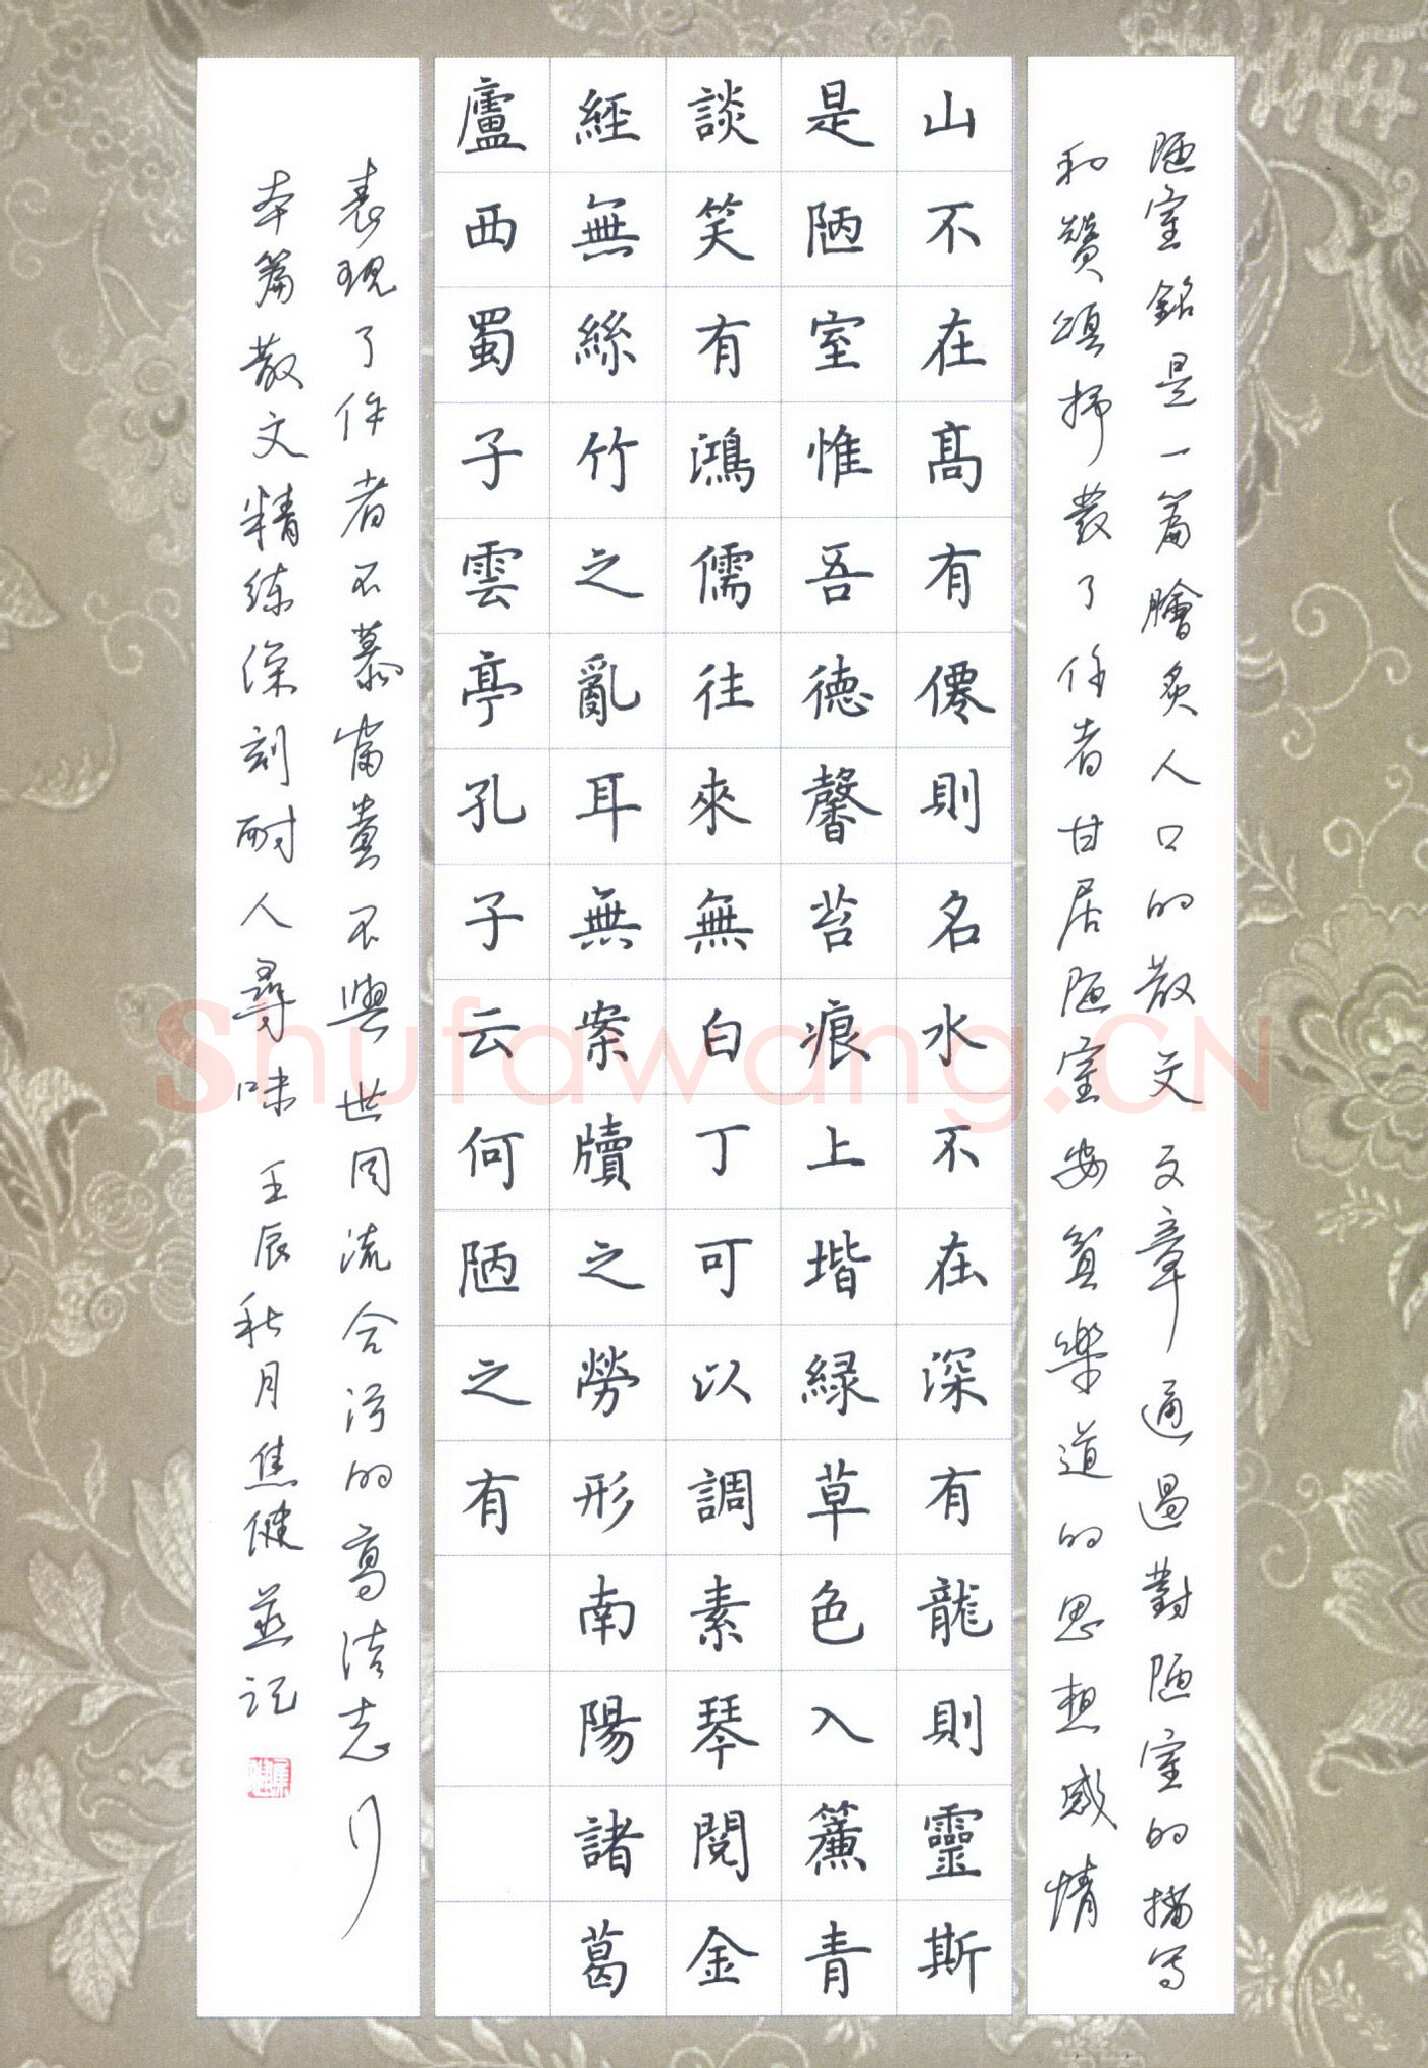 陋室銘是一篇膾炙人口的散文文章通過對陋室的描写
和贊頌抒發了作者甘居陋室安貧樂道的思想感情
山不在高有僊則名水不在深有龍則靈斯
是陋室惟吾德馨苔痕上堦緑草色入簾青
談笑有鴻儒往來無白丁可以調素琴閱金
經無絲竹之亂耳無案牘之勞形南陽諸葛
廬西蜀子雲亭孔子云何陋之有
表現了作者不慕富貴不與世同流合污的高潔志行
本篇散文精练深刻耐人尋味 壬辰秋月焦健並记
Shufawang.CN